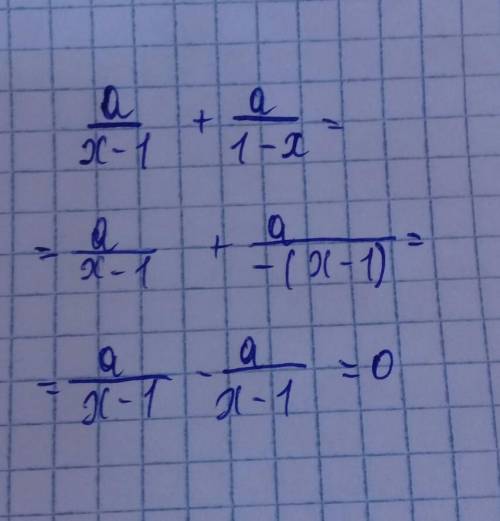 a/(x-1) + a/(1-x) =
= a/(x-1) + a/(-(x-1)) =
= a/(x-1) - a/(x-1) = 0